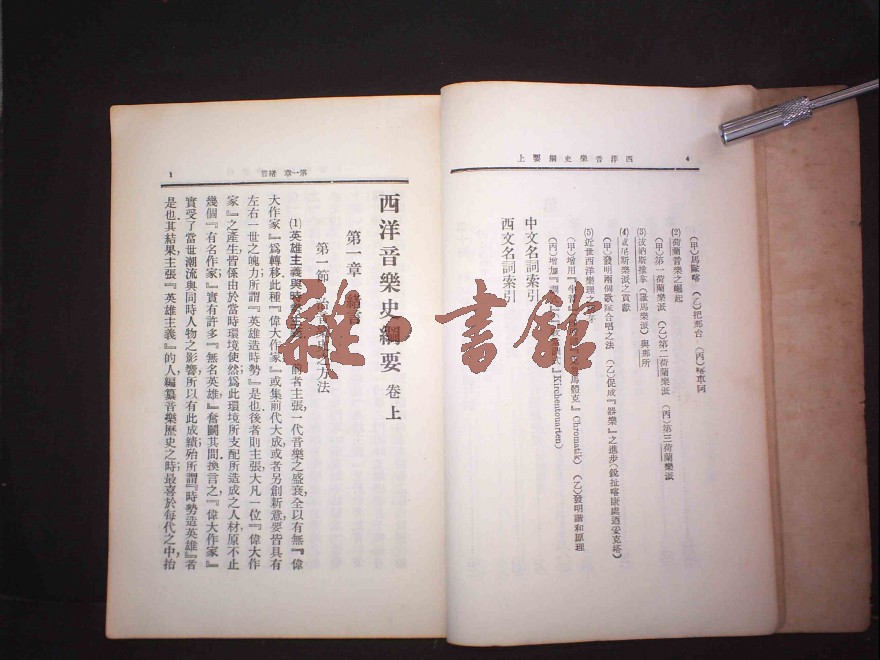 西洋音樂史綱要上 4
(甲)馬獸喀 (乙)把都台 (丙)喀車阿
(2)荷蘭音樂之崛起
(甲)第一荷蘭樂派 (乙)第二荷蘭樂派 (丙)第三荷蘭樂派
(3)波納斯推拿(羅馬樂派)與那所
(4)威尼斯樂派之貢獻
(甲)發明兩個歌隊合唱之法 (乙)促成『器樂』之進步
(5)近世西洋樂理之
(甲)增用『半音』 馬體克』Chromatik) (乙)發明諧和原理
(丙)增加『調式』 式』Kirchentonarten)
中文名詞索引
西文名詞索引
第一章 緒言 1
西洋音樂史綱要 卷上
第一章 緒言
第一節 治音樂史之方法
(1)英雄主義與時勢主義 前者主張,一代音樂之盛衰,全以有無『偉
大作家』為轉移此種『偉大作家』或集前代大成或者另創新意要皆具有
左右一世之魄力所謂『英雄造時勢』是也後者則主張大凡一位『偉大作
家』之產生皆係由於當時環境使然為此環境所支配所造成之人材原不止
幾個『有名作家』實有許多『無名英雄』奮鬭其間換言之『偉大作家』
實受了當世潮流與同時人物之影響所以有此成績殆所謂『時勢造英雄』者
是也其結果主張『英雄主義』的人,編纂音樂歷史之時,最喜於每代之中,抬
雜·書館